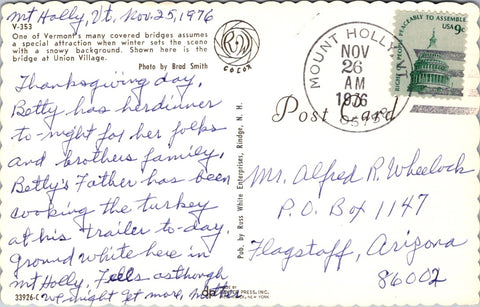 Mt Holly, Vt. Nov. 25, 1976
V-353
One of Vermont's many covered bridges assumes
a special attraction when winter sets the scene
with a snowy background. Shown here is the
bridge at Union Village.
Photo by Brad Smith
COLOR
Thanksgiving day,
Betty has her dinner
to-night for her folks
and brothers family,
Betty's Father has been
cooking the turkey
at his trailer to-day.
ground white here in
Mt Holly, Feels as though
we might get more,
33926-C
MADE BY
PRESS, INC.
NEW YORK
Pub. by Ross White Enterprises, Rindge, N. H.
MOUNT HOLLY
NOV
26
AM
1976
PEACEABLY TO ASSEMBLE
USA 9c
Post card
Mr. Alfred R. Wheelock
P.O. Box 1147
Flagstaff, Arizona
86002